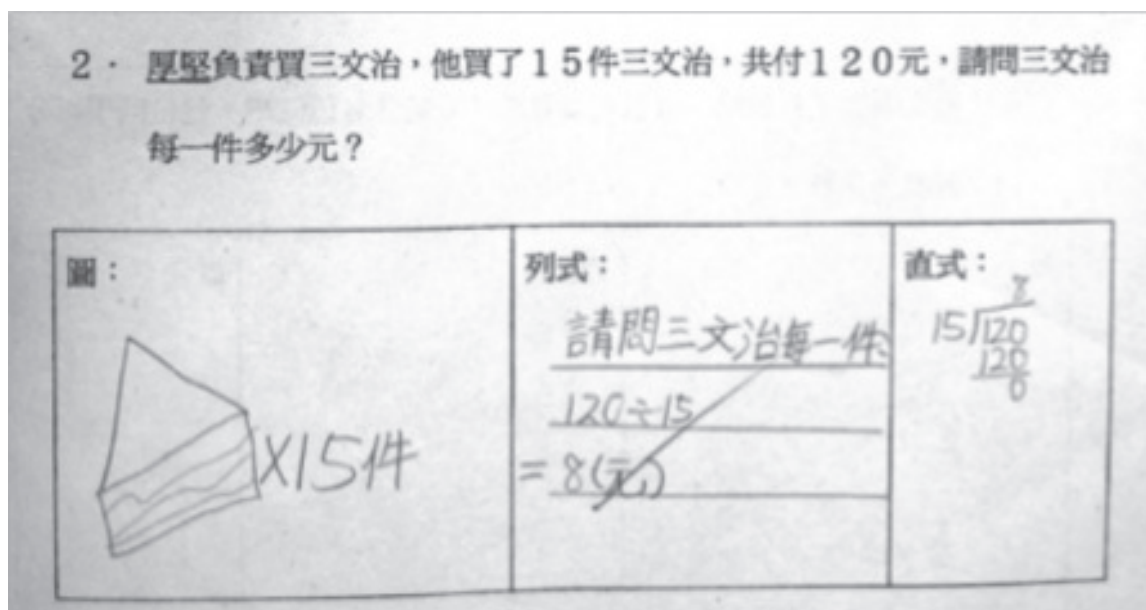 2. 厚堅負責買三文治，他買了15件三文治，共付120元，請問三文治
每一件多少元？
圖：
X15件
列式：
請問三文治每一件
120÷15
=8(元)
直式：
8
15120
120
0